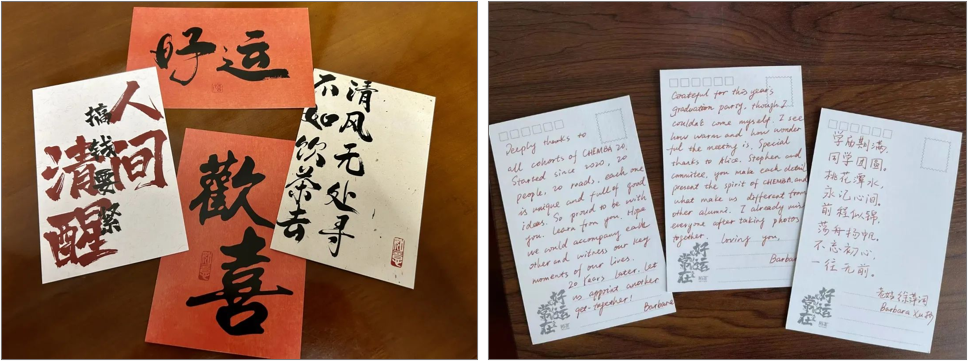 好运
人间清醒
搞钱要紧
歡喜
清风无处寻
不如饮茶去
Deeply thanks to
all cohorts of CHEMBA 20.
Started since 2020, 20
people, 20 roads, each one
is unique and full of good
ideas. So proud to be with
you. Learn from you. Hope
we could accompany each
other and witness our key
moments of our lives.
20 Years later, let
us appoint another
get-together!
Barbara
好运常在
Grateful for this year's
graduation party, though I
couldn't come myself, I see
how warm and how wonder
ful the meeting is. Special
thanks to Alice, Stephen and
comittee, you make each detail
present the spirit of CHEMBA and
what make us different from
other alumni. I already miss
everyone after taking photos
together.
Loving you,
Barbara
好运常在
学成期满,
同学团圆。
桃花潭水,
永记心间。
前程似锦,
荡舟扬帆。
不忘初心,
一往无前。
Barbara Xu
好运常在